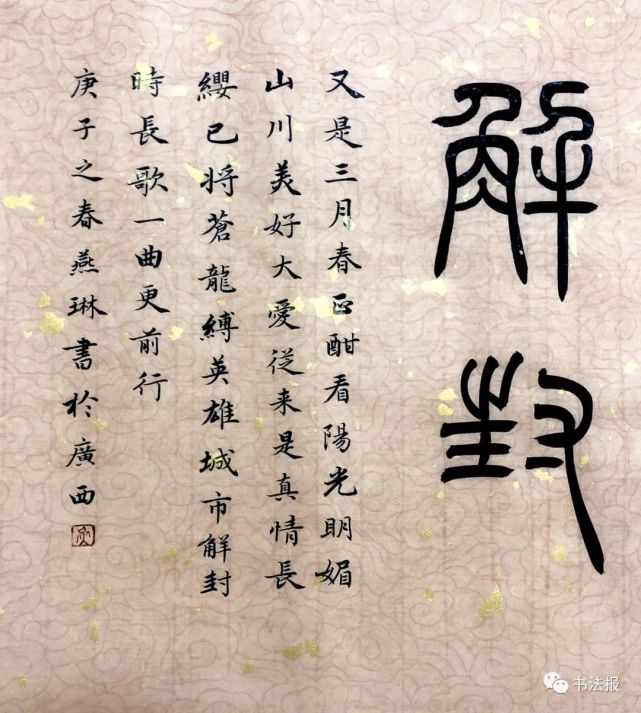 解封
又是三月春正酣看陽光明媚
山川美好大愛従来是真情長
纓已将蒼龍縛英雄城市解封
時長歌一曲更前行
庚子之春燕琳書於廣西
书法报